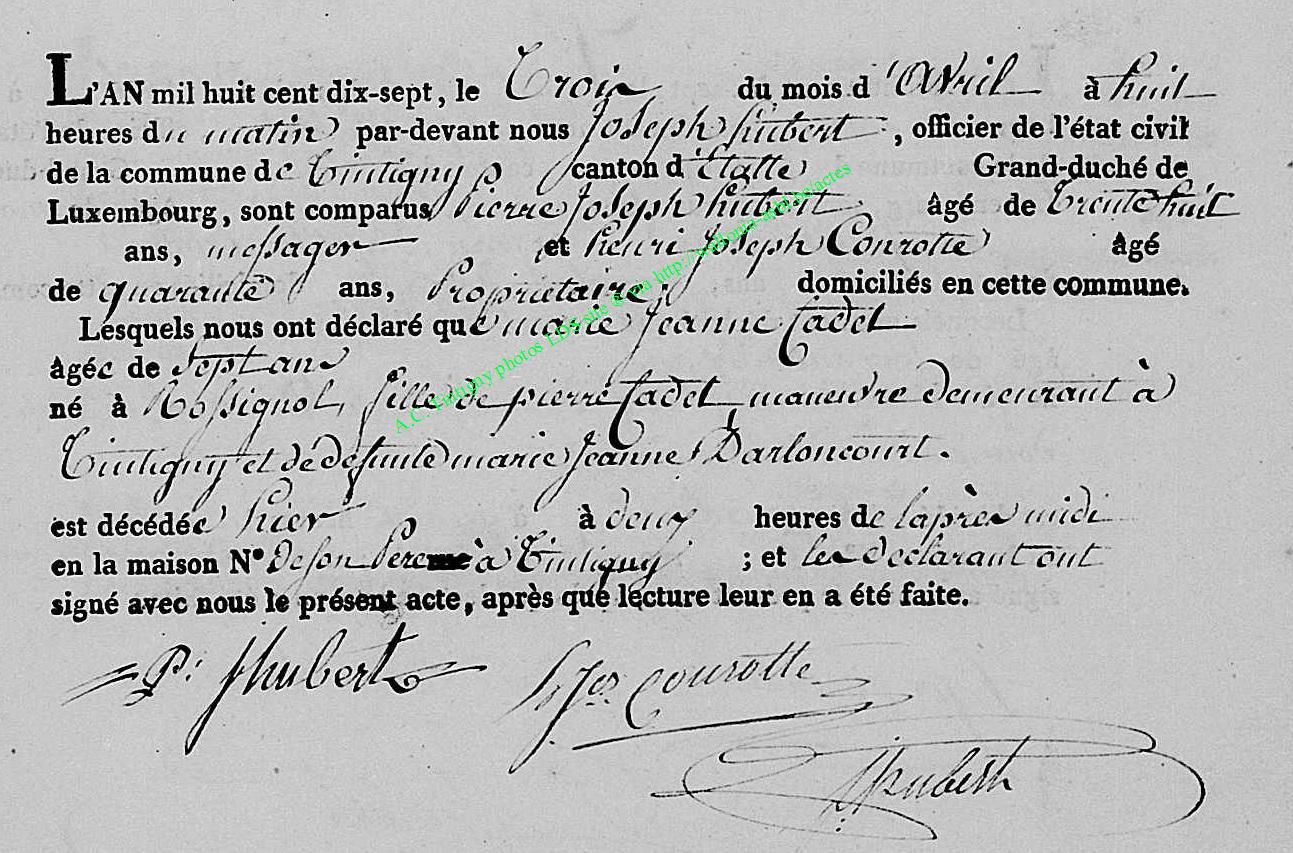 L'AN mil huit cent dix-sept, le Trois du mois d'avril à huit
heures du matin par-devant nous Joseph hubert, officier de l'état civil
de la commune de Tintigny canton d'Etalle Grand-duché de
Luxembourg, sont comparus Pierre Joseph hubert âgé de trente huit
ans, messager et henri Joseph Conrotte âgé
de quarante ans, Propriétaire, domiciliés en cette commune.
Lesquels nous ont déclaré que marie Jeanne Cadet
âgée de Sept ans
né à Rossignol, fille de pierre Cadet, maneuvre demeurant à
Tintigny et de défunte marie Jeanne Darloncourt.
est décédée hier à deux heures de laprès midi
en la maison N° De son Pere à Tintigny ; et les declarant ont
signé avec nous le présent acte, après que lecture leur en a été faite.
P. J hubert h Jos conrotte
J hubert
A.C. Tintigny photos LDS site @ via http://wallonia-asbl.be/actes